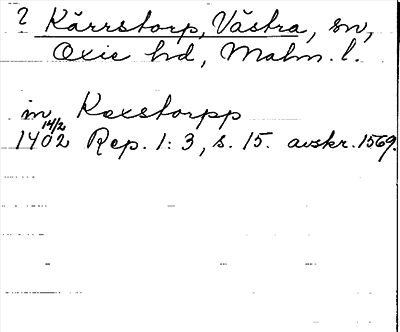 ? Kärrstorp, Västra, sn,
Oxie hd, Malm. l.
in Kexstorpp
14/2
1402 Rep. 1: 3, s. 15. avskr. 1569.